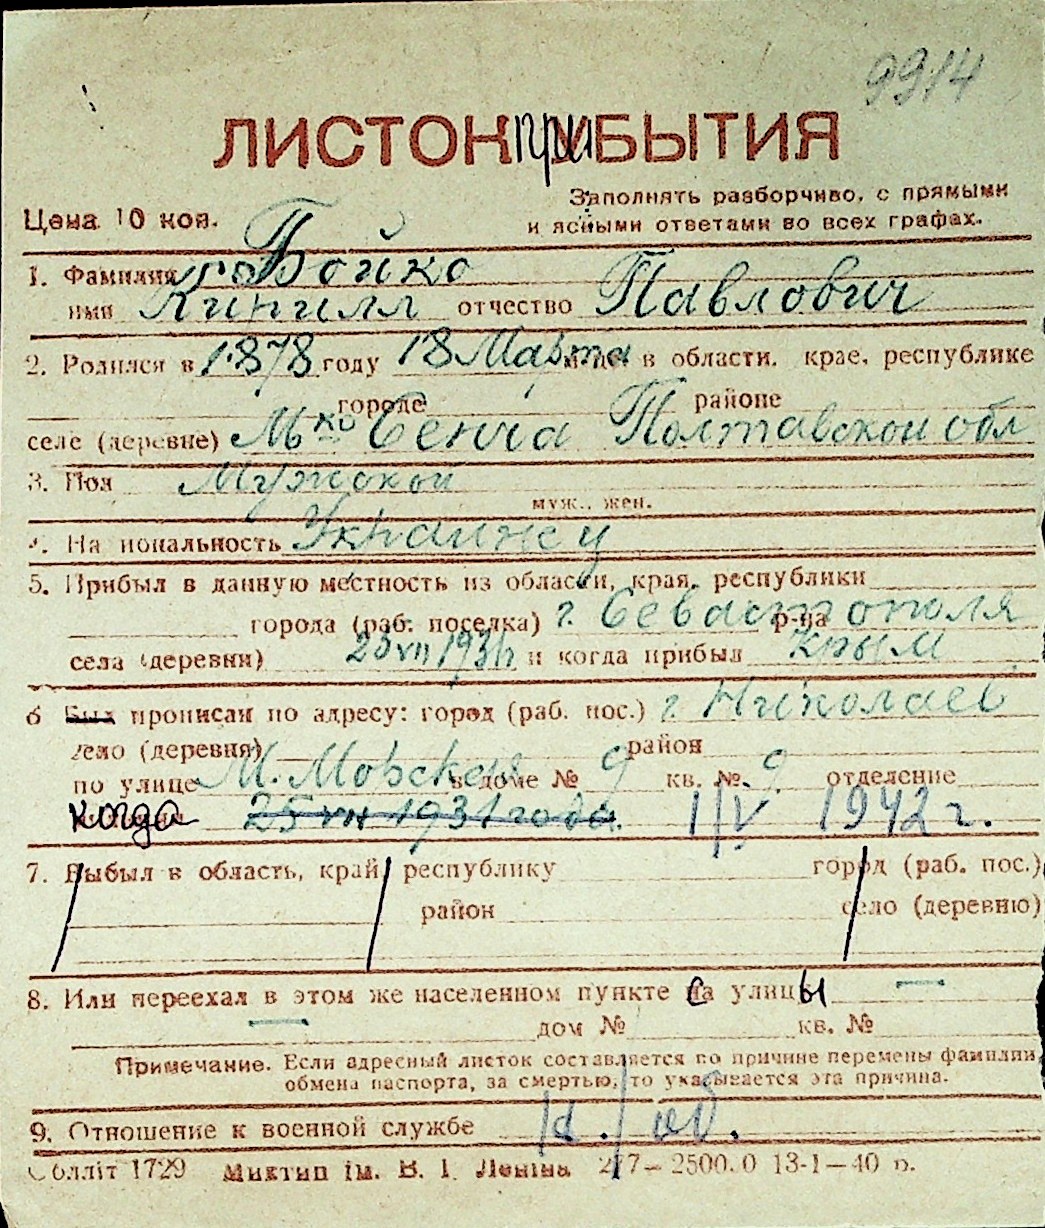 9914
ЛИСТОК при БЫТИЯ
Заполнять разборчиво, с прямыми
Цена 10 коп. и ясными ответами во всех графах.
1. Фамилия Бойко
имя Кирилл отчество Павлович
2. Родился в 1878 году 18 Марта м-це в области, крае, республике
городе районе
селе (деревне) М ко Сенча Полтавской обл
3. Пол Мужской
муж., жен.
4. Национальность Украинец
5. Прибыл в данную местность из области, края, республики
города (раб. поселка) г. Севастополя р-на
села (деревни) 25 VII 1931 и когда прибыл Крым
6 Был прописан по адресу: город (раб. пос.) г. Николаев
село (деревня) район
по улице М. Морская в доме № 9 кв. № 9 отделение
когда 25 VII 1931 года. 1/V 1942 г.
7. Выбыл в область, край, республику город (раб. пос.)
район село (деревню)
8. Или переехал в этом же населенном пункте с улицы —
— дом № кв. №
Примечание. Если адресный листок составляется по причине перемены фамилии,
обмена паспорта, за смертью, то указывается эта причина.
9. Отношение к военной службе н/об.
Облліт 1729 Миктип ім. В. І. Леніна 217—2500.0 13-1—40 р.